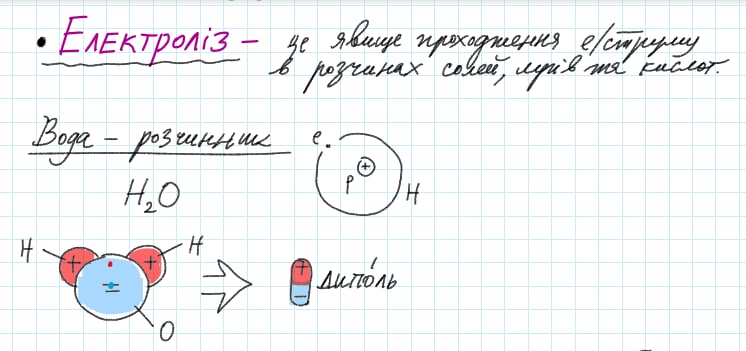 • Електроліз – це явище проходження е/струму
в розчинах солей, лугів та кислот.
Вода – розчинник
H₂O
e.
p +
H
H
H
+ +
–
O
+
–
диполь